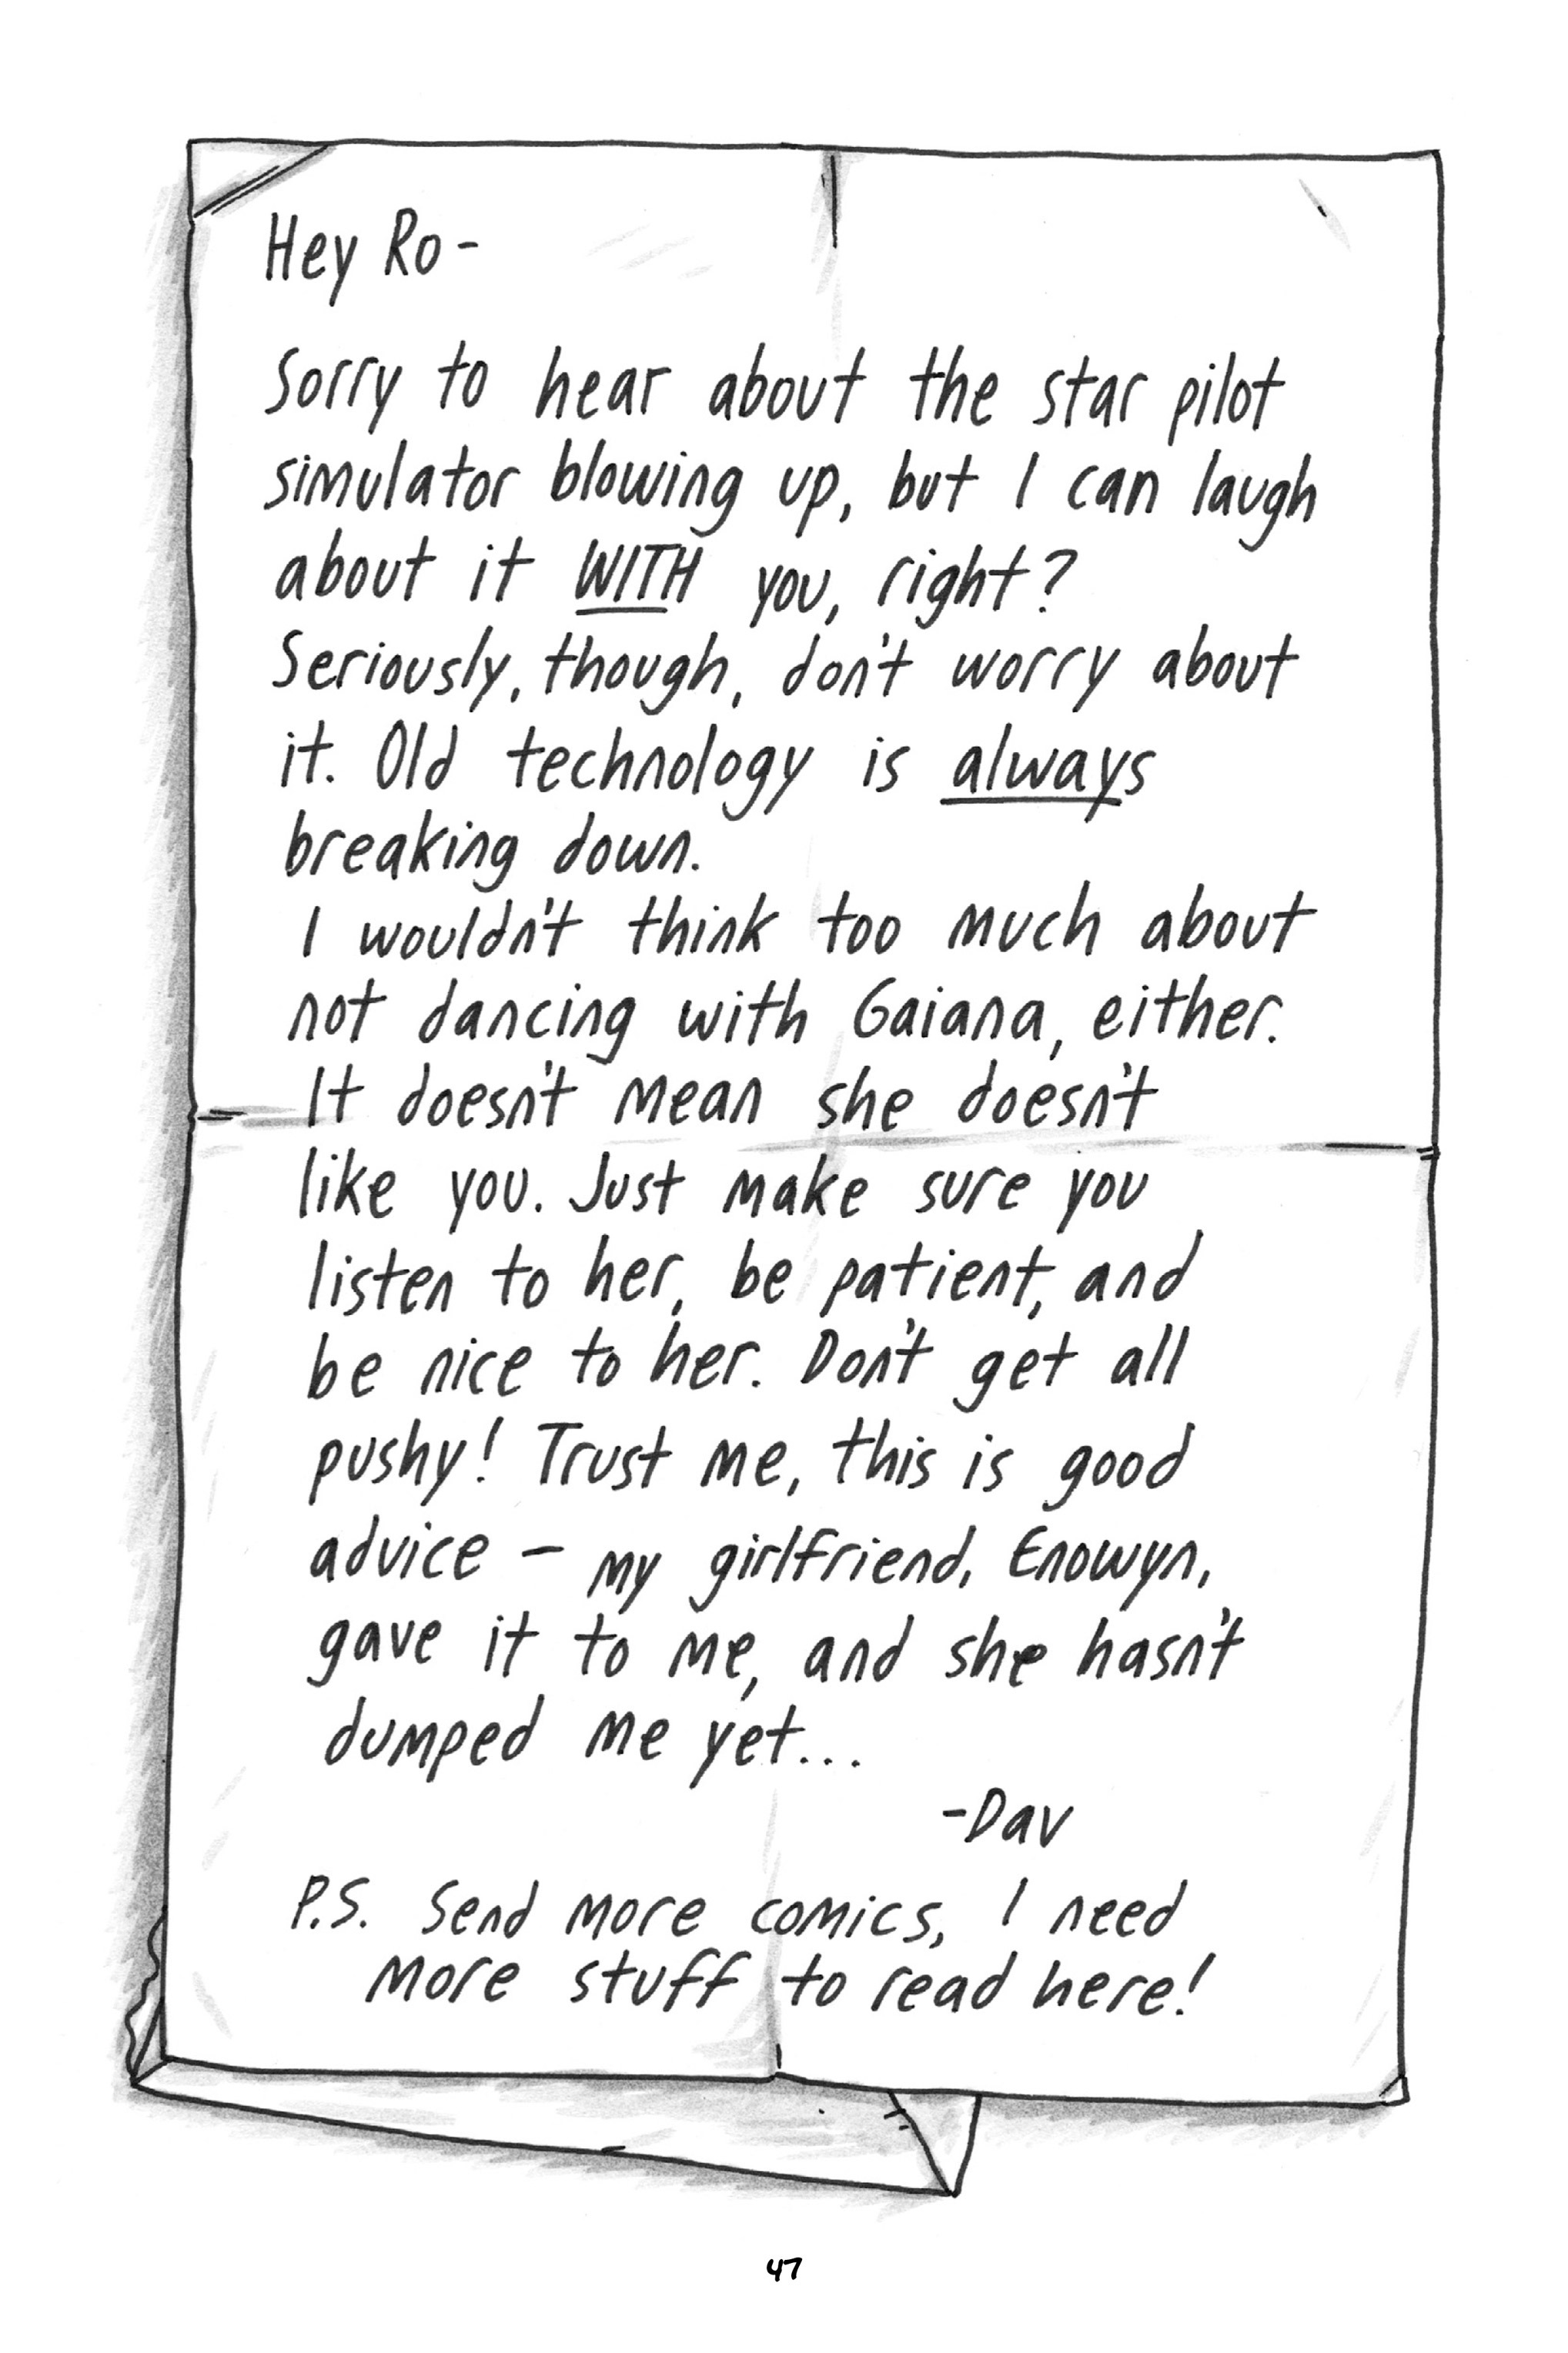 Hey Ro-
Sorry to hear about the star pilot
simulator blowing up, but I can laugh
about it WITH you, right?
Seriously, though, don't worry about
it. Old technology is always
breaking down.
I wouldn't think too much about
not dancing with Gaiana, either.
It doesn't mean she doesn't
like you. Just make sure you
listen to her, be patient, and
be nice to her. Don't get all
pushy! Trust me, this is good
advice - my girlfriend, Enowyn,
gave it to me, and she hasn't
dumped me yet...
-Dav
P.S. Send more comics, I need
more stuff to read here!
47